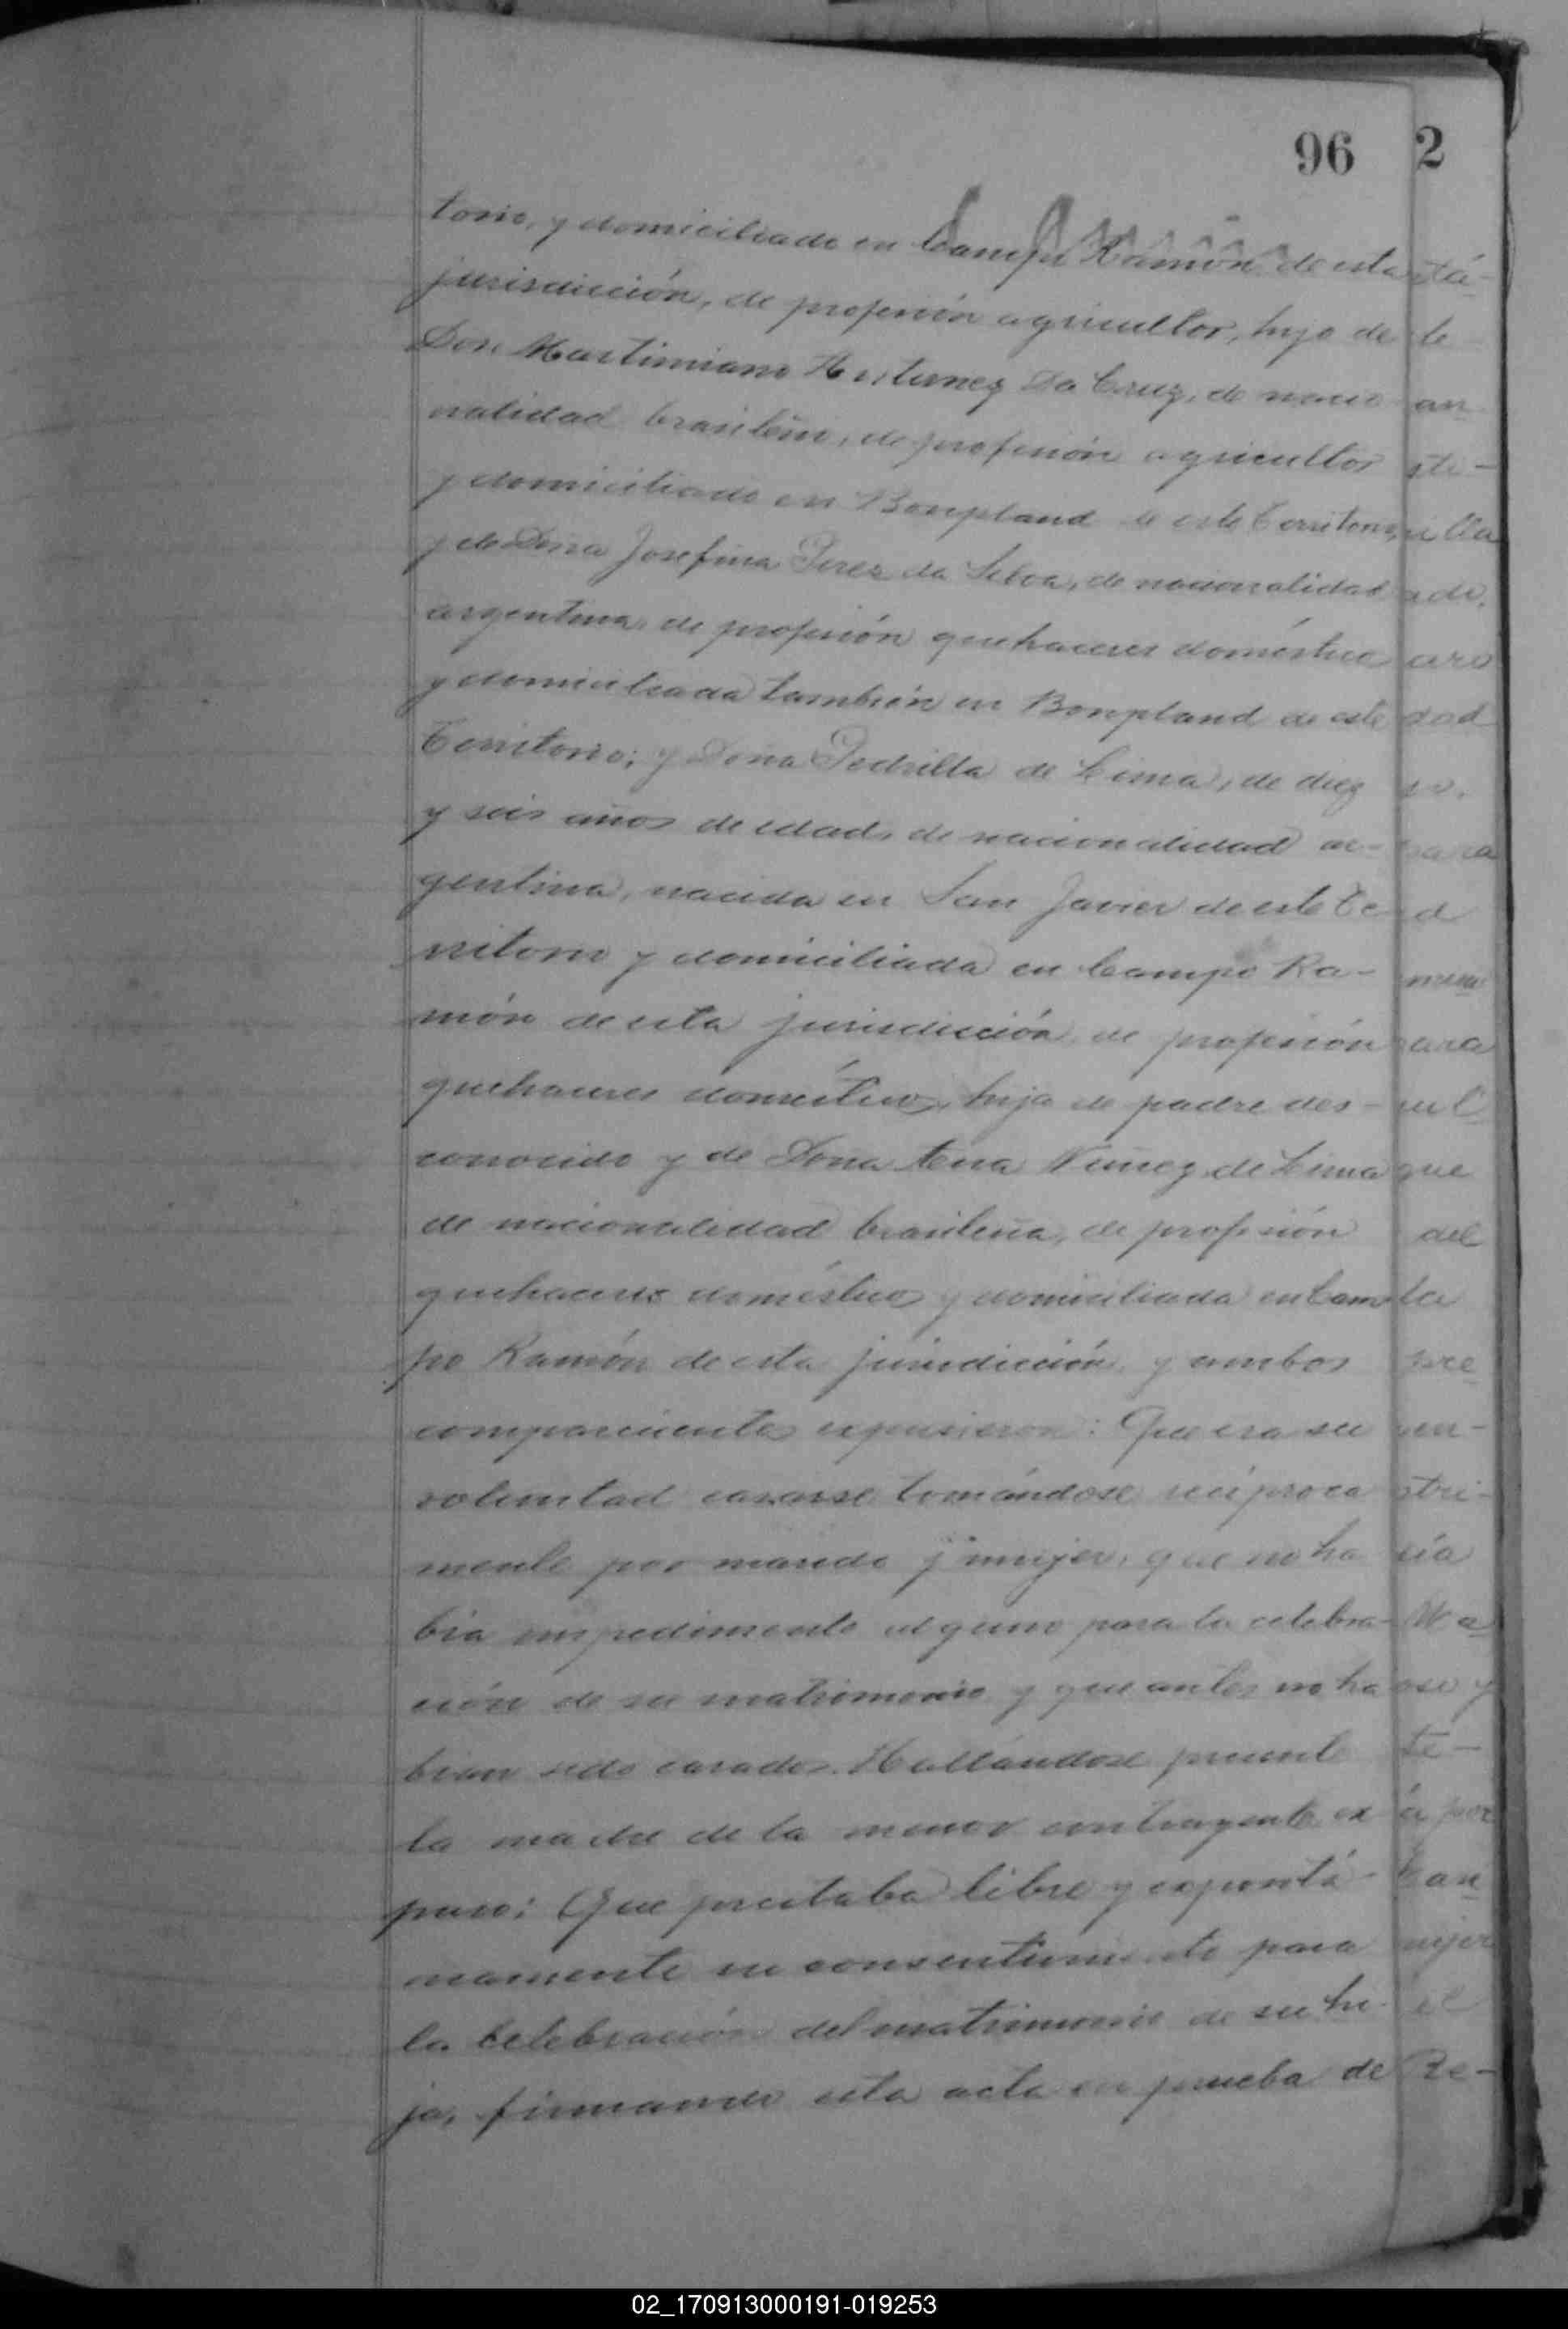 96 2
torio, y domiciliado en Campo Ramón de esta
jurisdicción, de profesión agricultor, hijo de
Don Martimiano Da Cruz, de nacio
nalidad brasileña, de profesión agricultor
y domiciliado en Bonpland de este Territorio,
y de Doña Josefina Perez da Selva, de nacionalidad
argentina, de profesión quehaceres domésticos
y domiciliada también en Bonpland de este
Territorio; y Doña Pedrilla de Lima, de diez
y seis años de edad, de nacionalidad ar-
gentina, nacida en San Javier de este Te
rritorio y domiciliada en Campo Ra-
món de esta jurisdicción, de profesión
quehaceres domésticos, hija de padre des-
conocido y de Doña Nuñez de Lima
de nacionalidad brasileña, de profesión
quehaceres domésticos y domiciliada en Cam
po Ramón de esta jurisdicción, y ambos
comparecientes expusieron: Que era su
voluntad casarse tomándose recíproca
mente por marido y mujer, que no ha
bía impedimento alguno para la celebra-
ción de su matrimonio y que antes no ha
bian sido casados. Hallándose presente
la madre de la menor contrayente ex
puso: Que prestaba libre y espontá-
neamente su consentimiento para
la celebración del matrimonio de su hi-
ja, firmando esta acta en prueba de
02_170913000191-019253